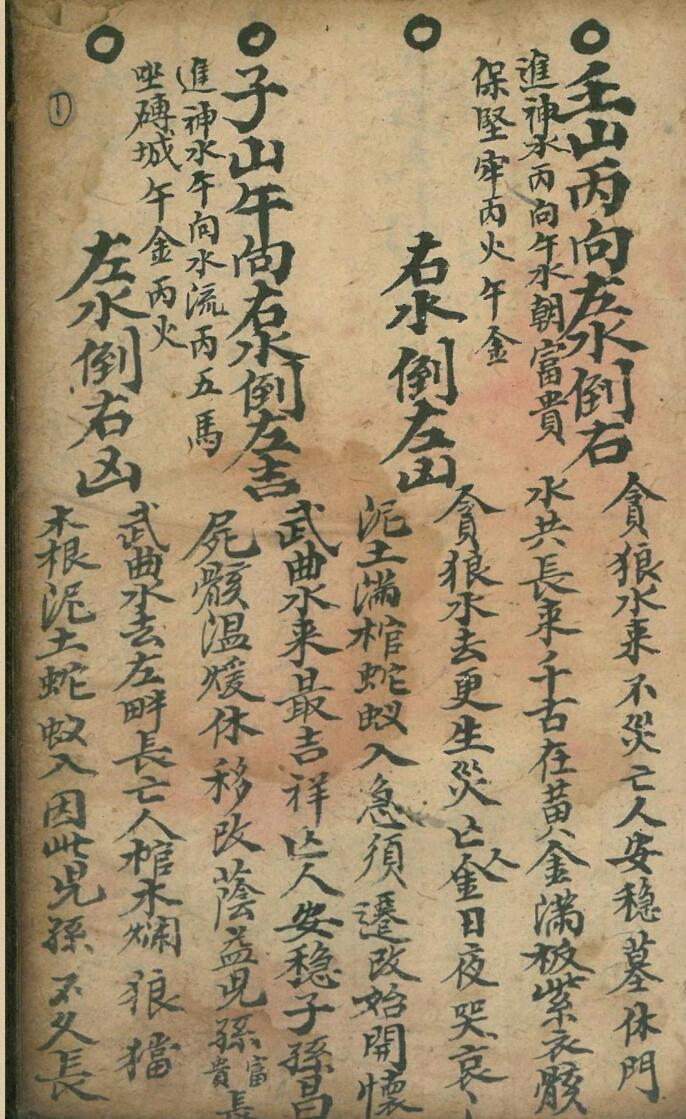 壬山丙向左水倒右
進神水丙向午水朝富貴
保堅牢丙火午金
貪狼水來不災亡人安穩墓休門
水共長來千古在黃金滿板紫衣骸
右水倒左凶
貪狼水去更生災亡人金日夜哭哀哀
泥土滿棺蛇蚁入急須遷改始開懷
子山午向右水倒左吉
進神水午向水流丙五馬
坐磚城午金丙火
武曲水來最吉祥亡人安穩子孫昌
屍骸温煖休移改蔭益児孫富貴長
左水倒右凶
武曲水去左畔長亡人棺木爛狼擋
木根泥土蛇蚁入因此児孫不久長
①